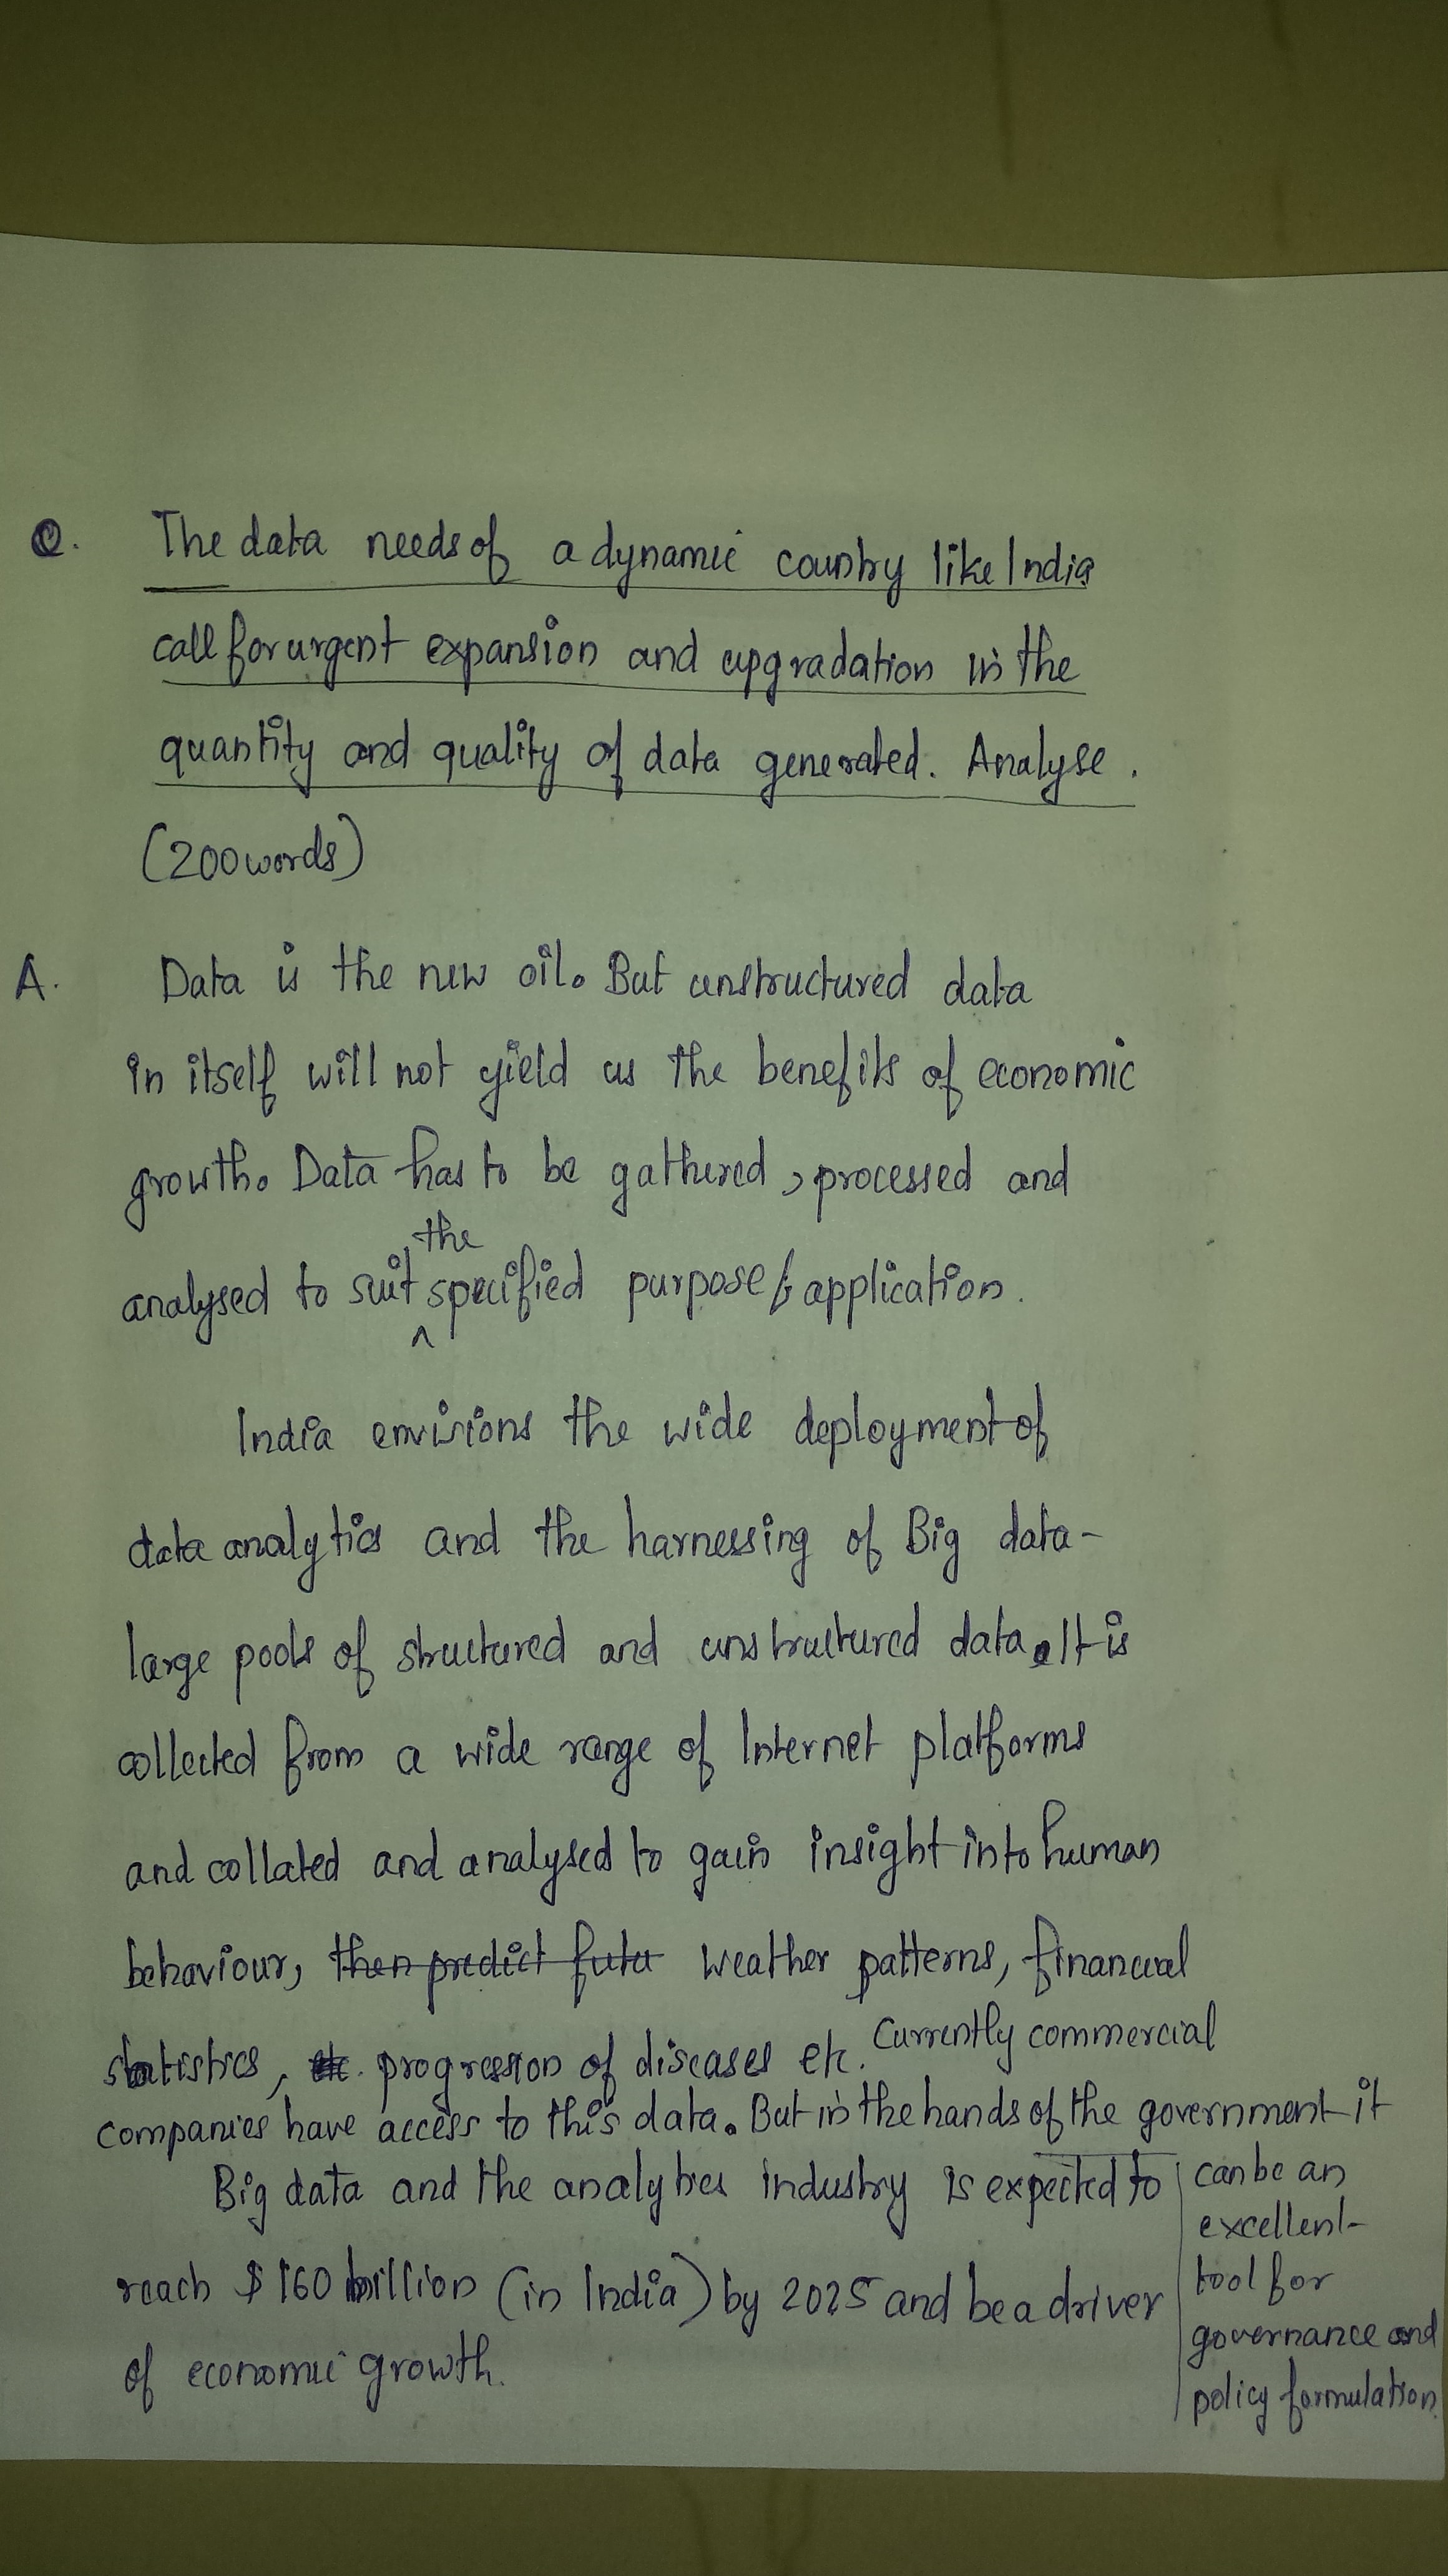 Q. The data needs of a dynamic country like India
call for urgent expansion and upgradation in the
quantity and quality of data generated. Analyse.
(200 words)
A. Data is the new oil. But unstructured data
in itself will not yield us the benefits of economic
growth. Data has to be gathered, processed and
analysed to suit the specified purpose & application.
India envisions the wide deployment of
data analytics and the harnessing of Big data -
large pools of structured and unstructured data. It is
collected from a wide range of Internet platforms
and collated and analysed to gain insight into human
behaviour, then predict futu weather patterns, financial
statistics, etc. progression of diseases etc. Currently commercial
companies have access to this data. But in the hands of the government it
can be an
excellent
tool for
governance and
policy formulation.
Big data and the analytics industry is expected to
reach $ 160 billion (in India) by 2025 and be a driver
of economic growth.